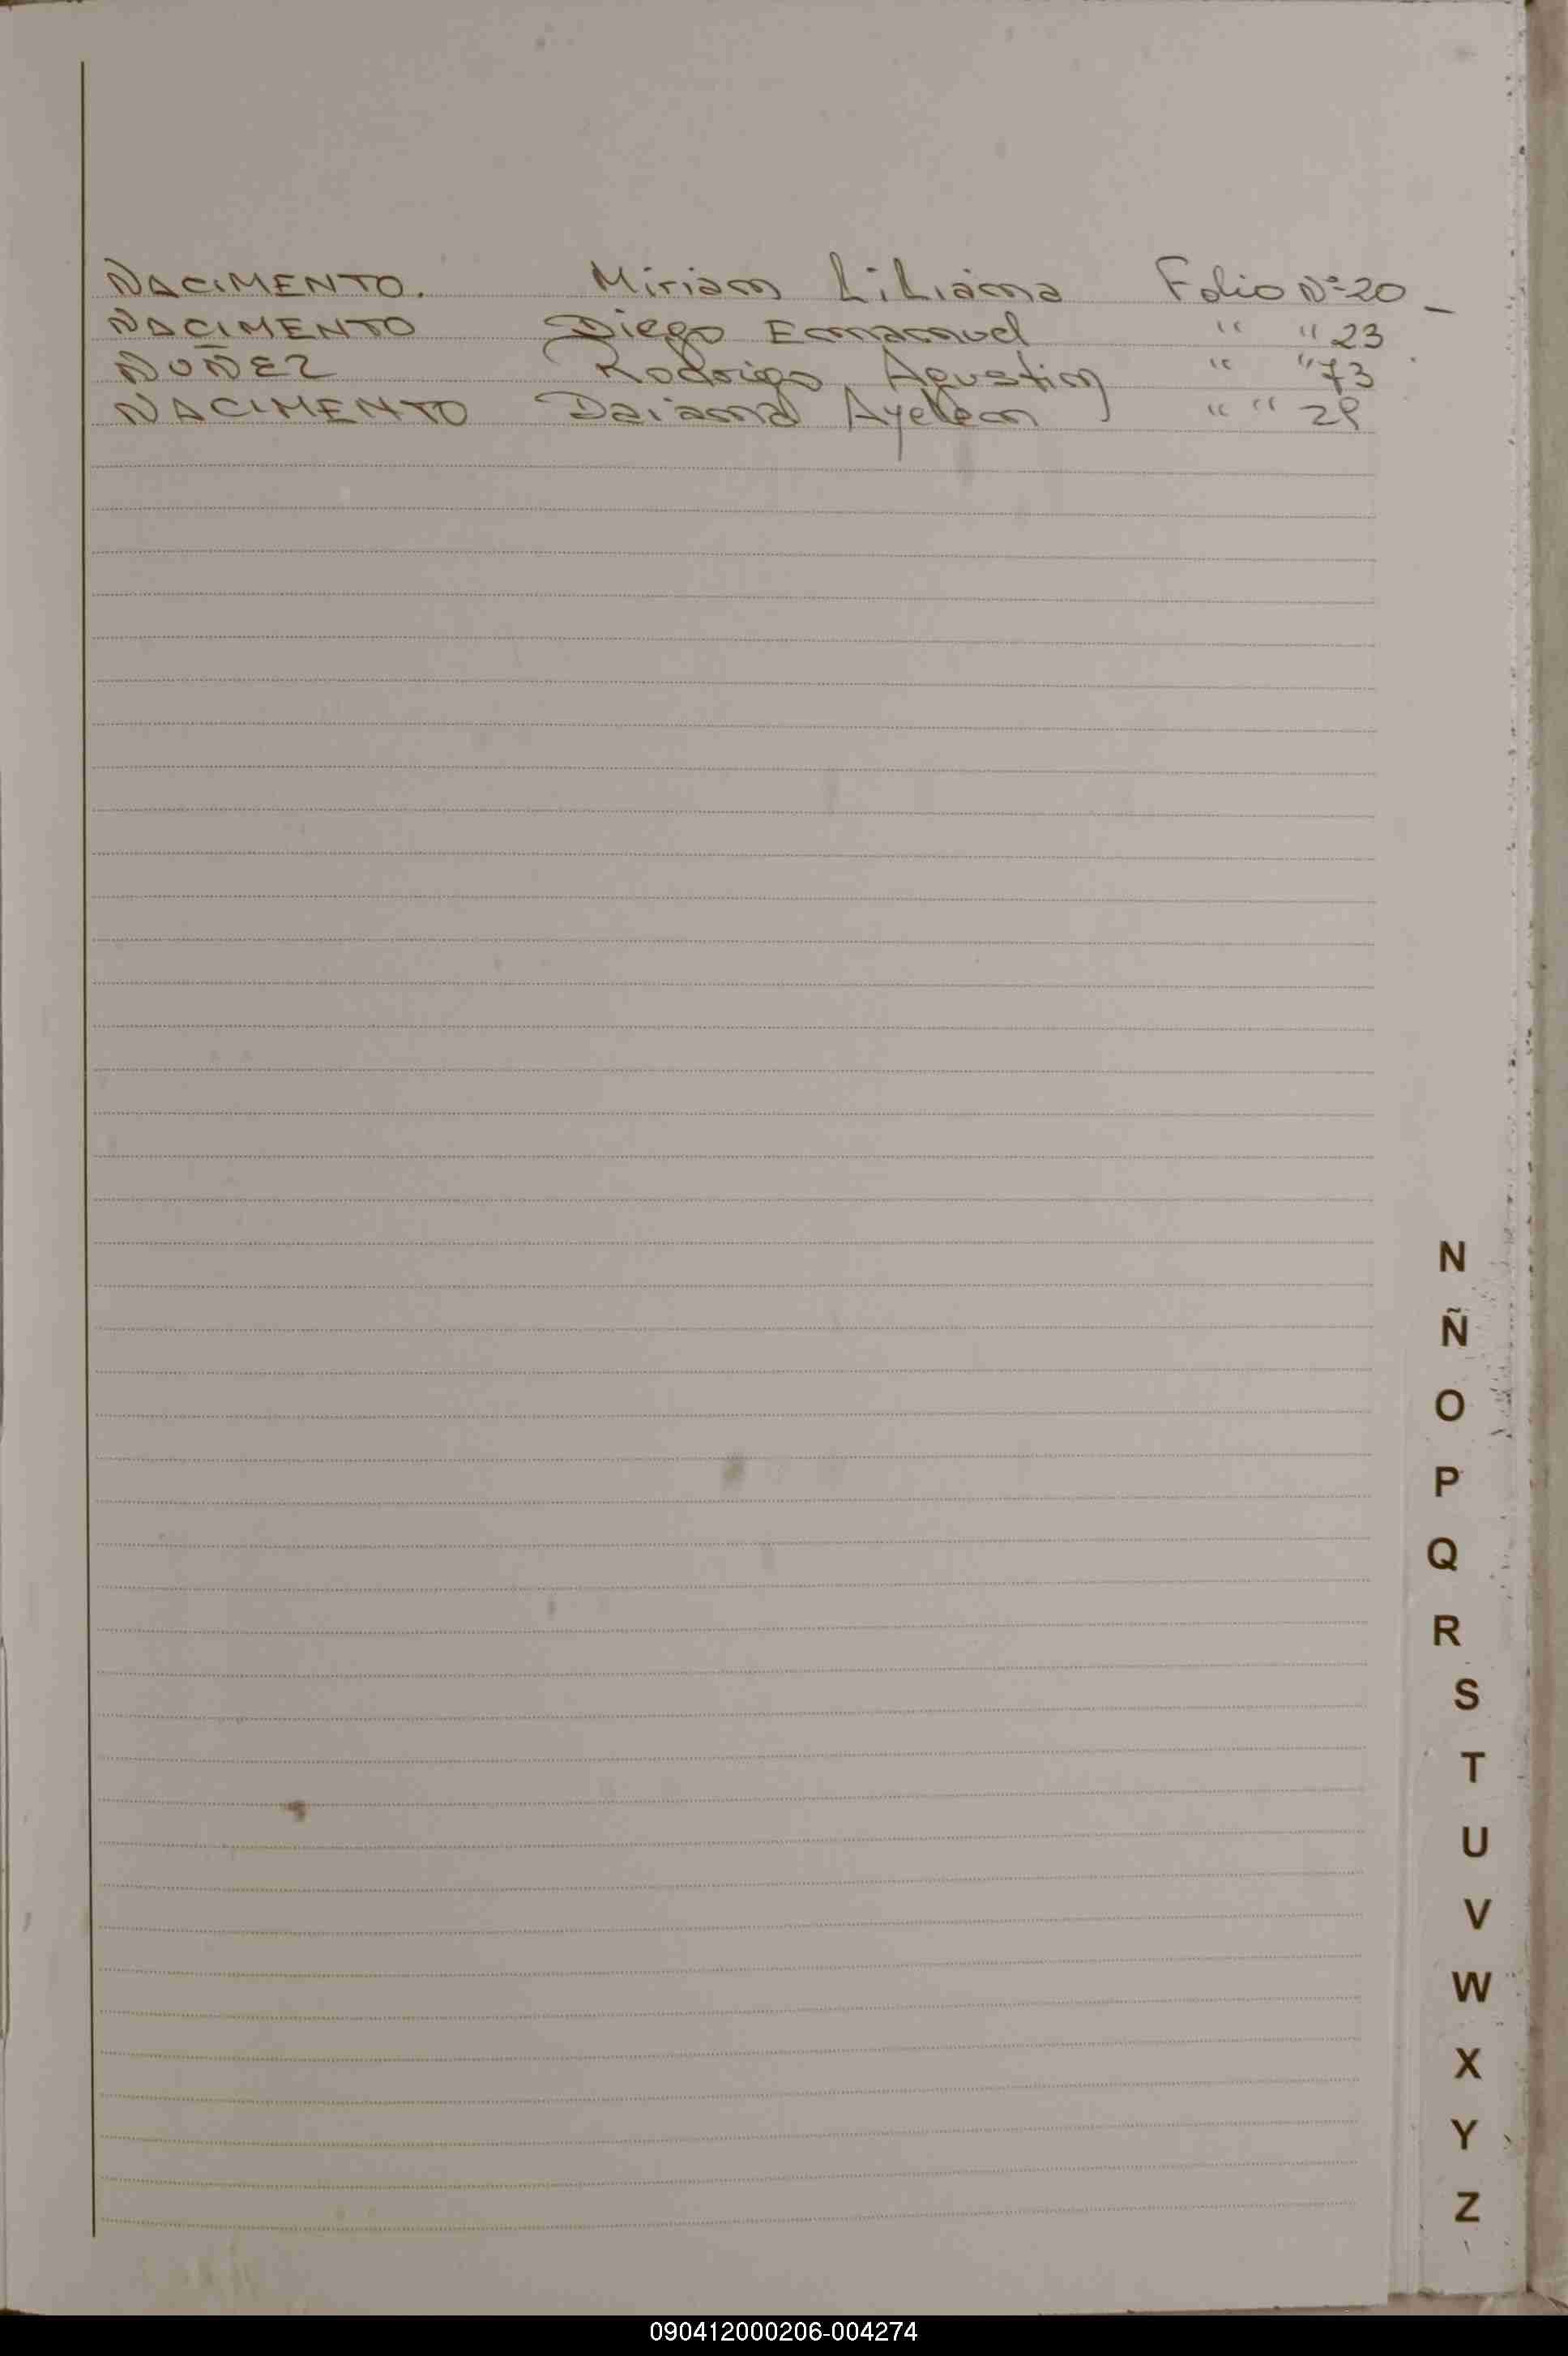 NACIMENTO. Miriam Liliana Folio Nº 20
NACIMENTO Diego Emanuel " " 23
NUÑEZ Rodrigo Agustin " " 73
NACIMENTO Daiana Ayelen " "
N
Ñ
O
P
Q
R
S
T
U
V
W
X
Y
Z
090412000206-004274